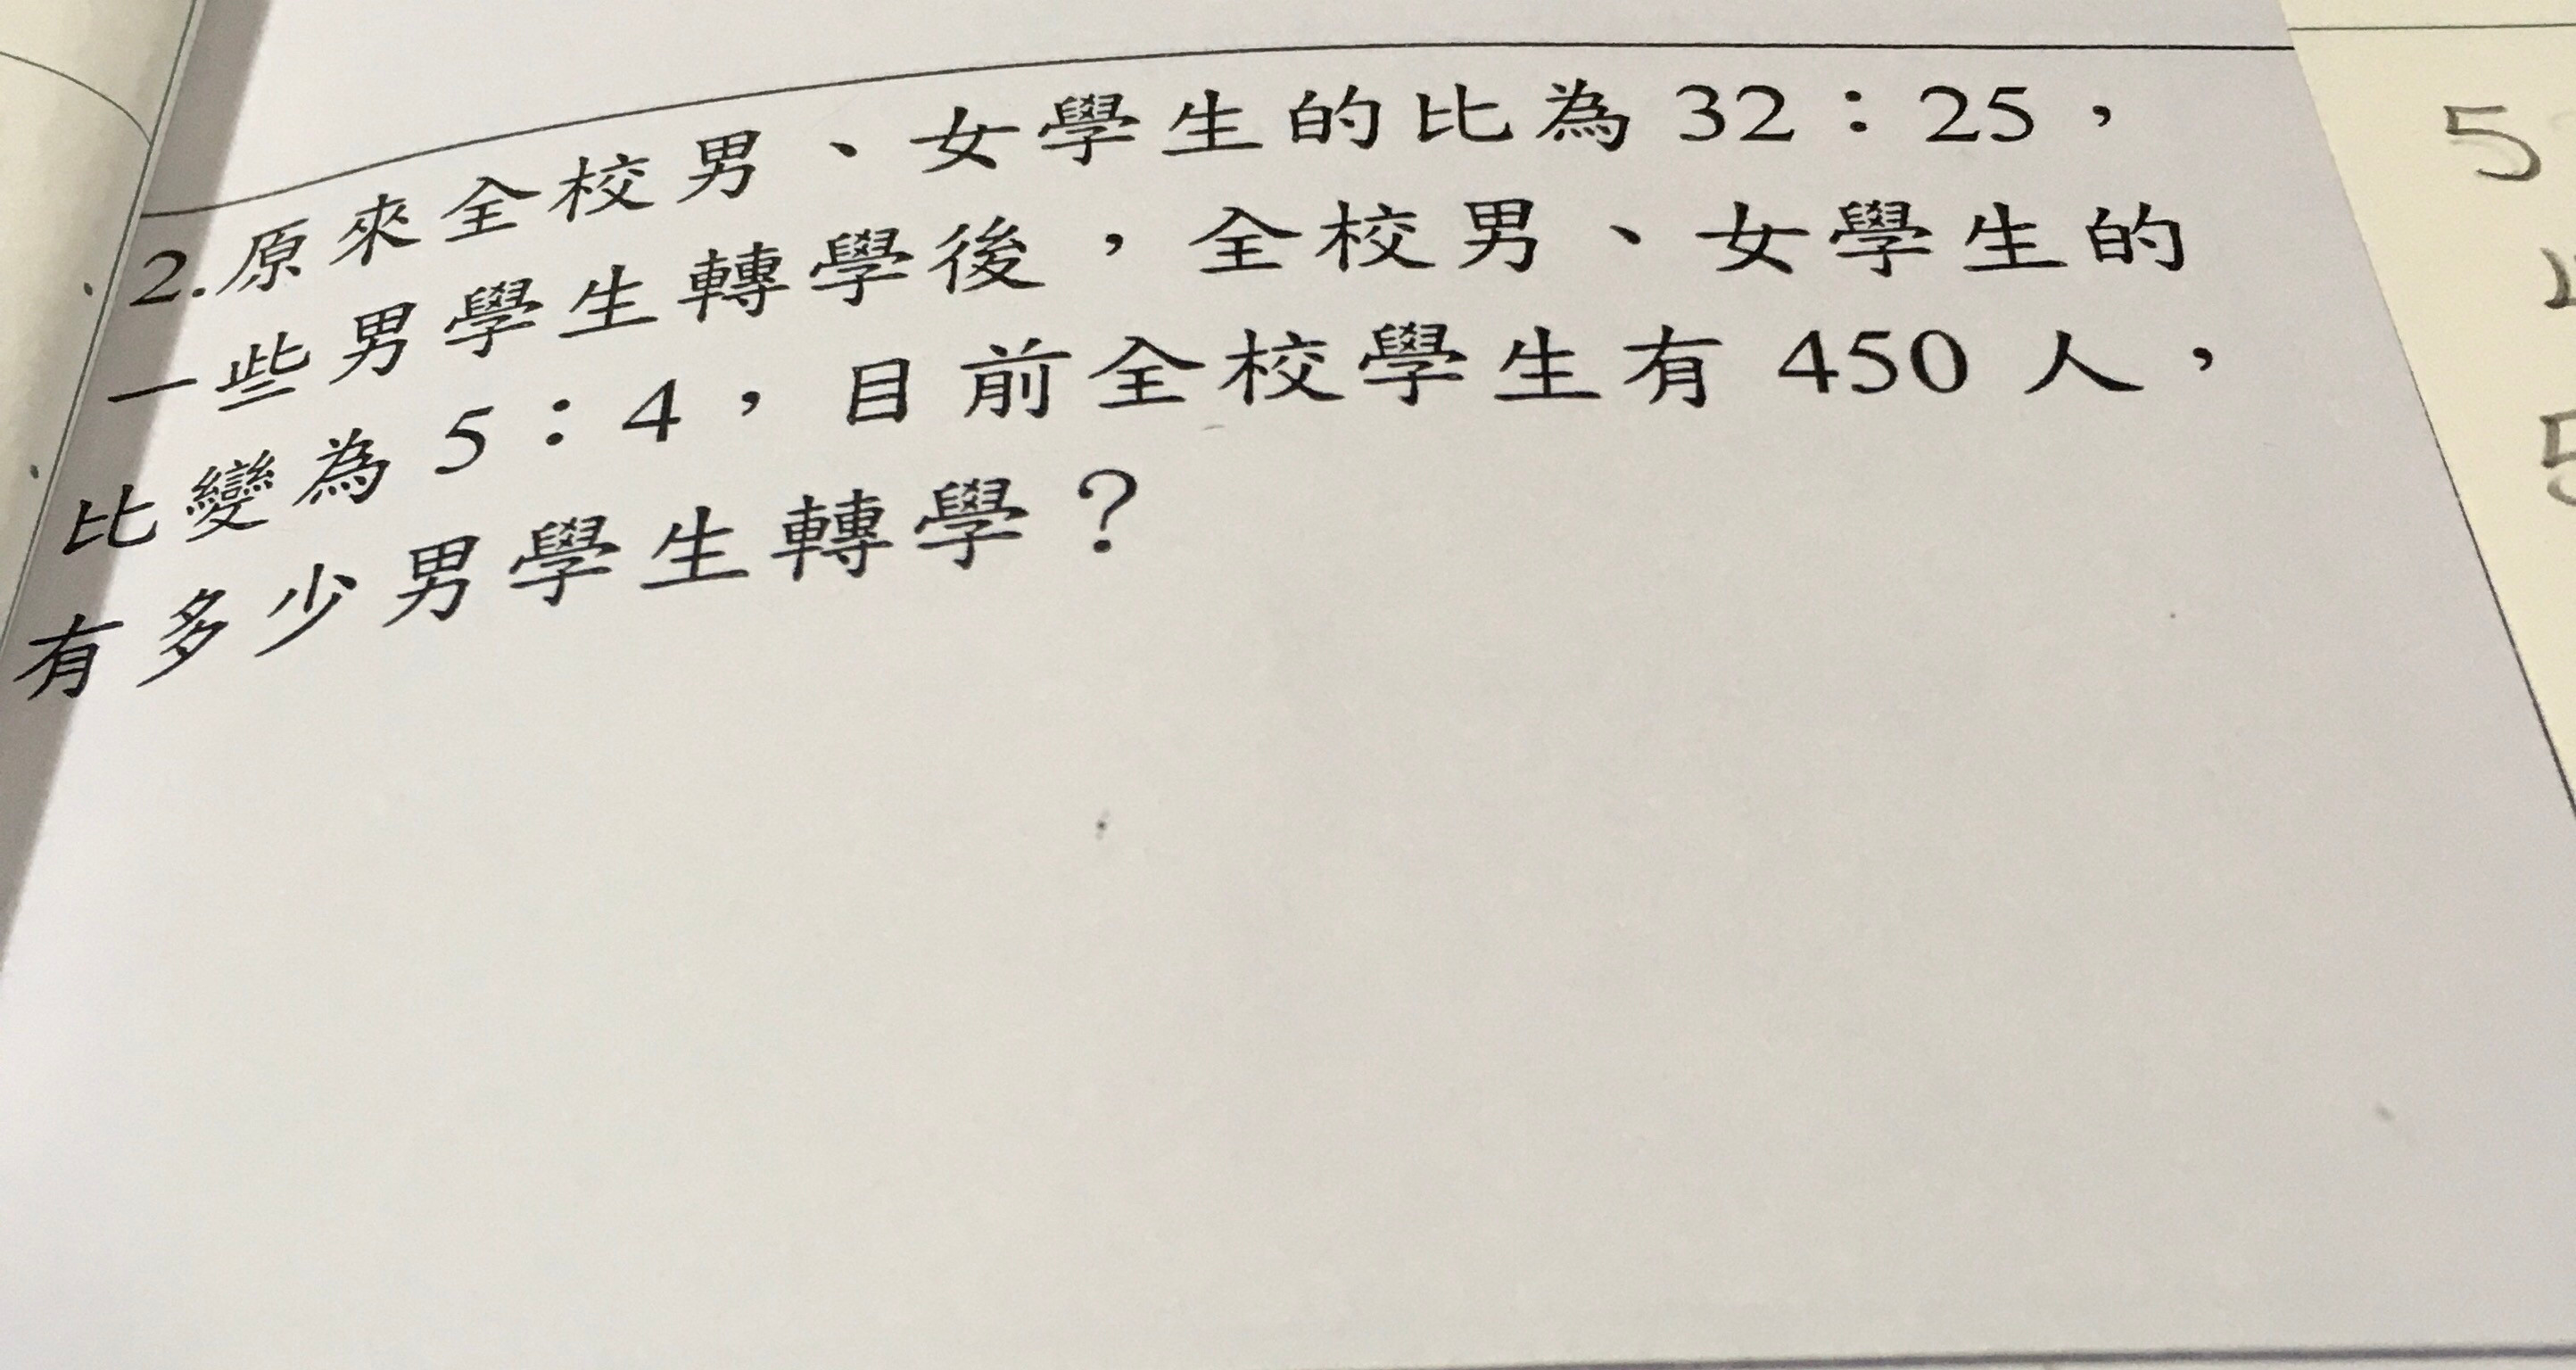 2.原來全校男、女學生的比為 32：25，
一些男學生轉學後，全校男、女學生的
比變為 5：4，目前全校學生有 450 人，
有多少男學生轉學？
5